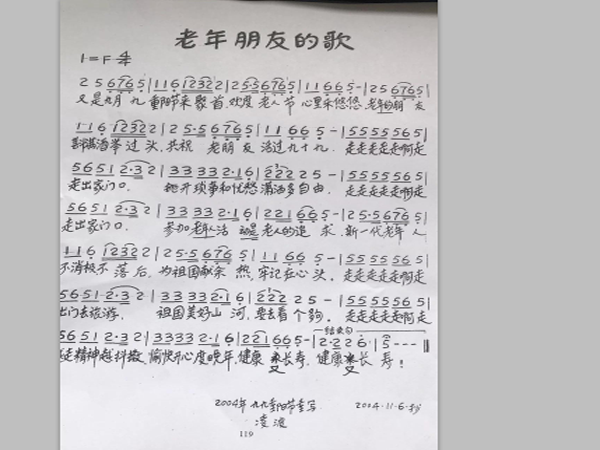 老年朋友的歌
1=F 4/4
2 5 6765|116 12322|25·5 6765|1166 5-|25 6765|
又是九月九 重阳节来聚首,欢度老人节 心里乐悠悠,老年的朋友
116 12322|25·5 6765|1166 5-|5555565|
举过头,共祝 老朋友 活过九十九.走走走走走啊走
5651 2·32|33332·16|22225-|5555565|
走出家门口. 抛开琐事和忧愁 潇洒多自由.走走走走走啊走
5651 2·32|33332·16|221665-|25·56765|
走出家门口. 参加老年活动是老人的追求.新一代老年人
116 12322|25·56765|11665-|5555565|
不消极不落后,为祖国献余热,牢记在心头.走走走走走啊走
5651 2·32|33332·16|22225-|5555565|
出门去旅游. 祖国美好山河,要去看个够.走走走走走啊走
5651 2·32|33332·16|221665-|2·2226·|5---‖
结束句
走精神越抖擞,愉快开心度晚年,健康来长寿.健康来长寿!
又 又
2004年九九重阳节重写
2004.11.6.抄
凌波
119